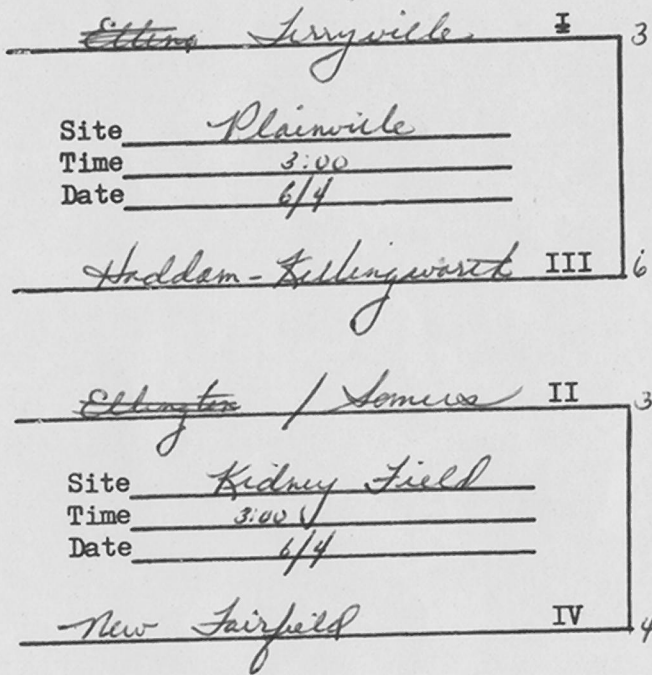 Elling Terryville I 3
Site Plainville
Time 3:00
Date 6/4
Haddam-Killingworth III 6
Ellington / Somers II 3
Site Kidney Field
Time 3:00
Date 6/4
New Fairfield IV 4